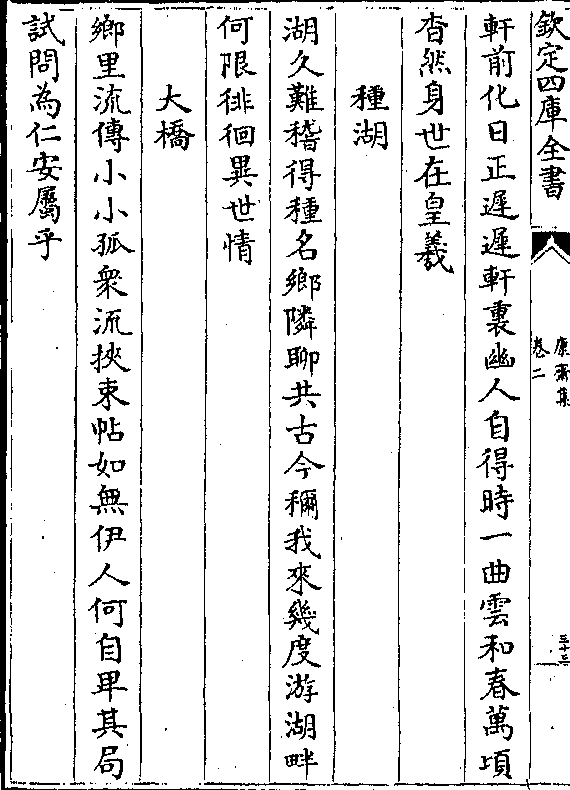 欽定四庫全書
康齋集
卷二
三十三
軒前化日正遲遲軒裏幽人自得時一曲雲和春萬頃
杳然身世在皇羲
種湖
湖久難稽得種名鄉隣聊共古今稱我來幾度游湖畔
何限徘徊異世情
大橋
鄉里流傳小小孤衆流挾束帖如無伊人何自卑其局
試問為仁安屬乎